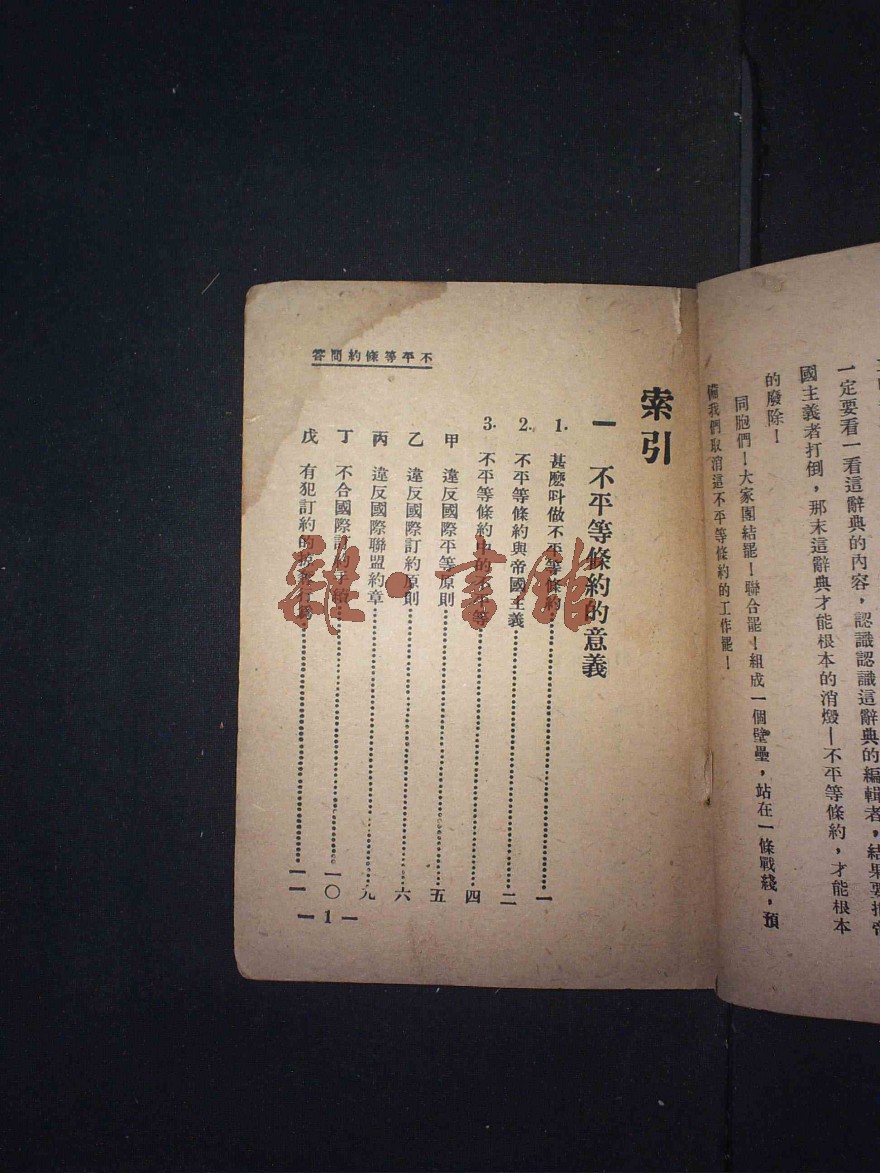 一定要看一看這辭典的內容，認識認識這辭典的編輯者，結果要把帝
國主義者打倒，那末這辭典才能根本的消燬—不平等條約，才能根本
的廢除！
同胞們！大家團結罷！聯合罷！組成一個壁壘，站在一條戰綫，預
備我們取消這不平等條約的工作罷！
索引
一 不平等條約的意義
1. 甚麼呌做不平等條約……一
2. 不平等條約與帝國主義……二
3. 不平等條約中的不平等……四
甲 違反國際平等原則……五
乙 違反國際訂約原則……六
丙 違反國際聯盟約章……九
丁 不合國際訂約手續……一〇
戊 有犯訂約的行為……一一
不平等條約問答
—1—
雜·書館